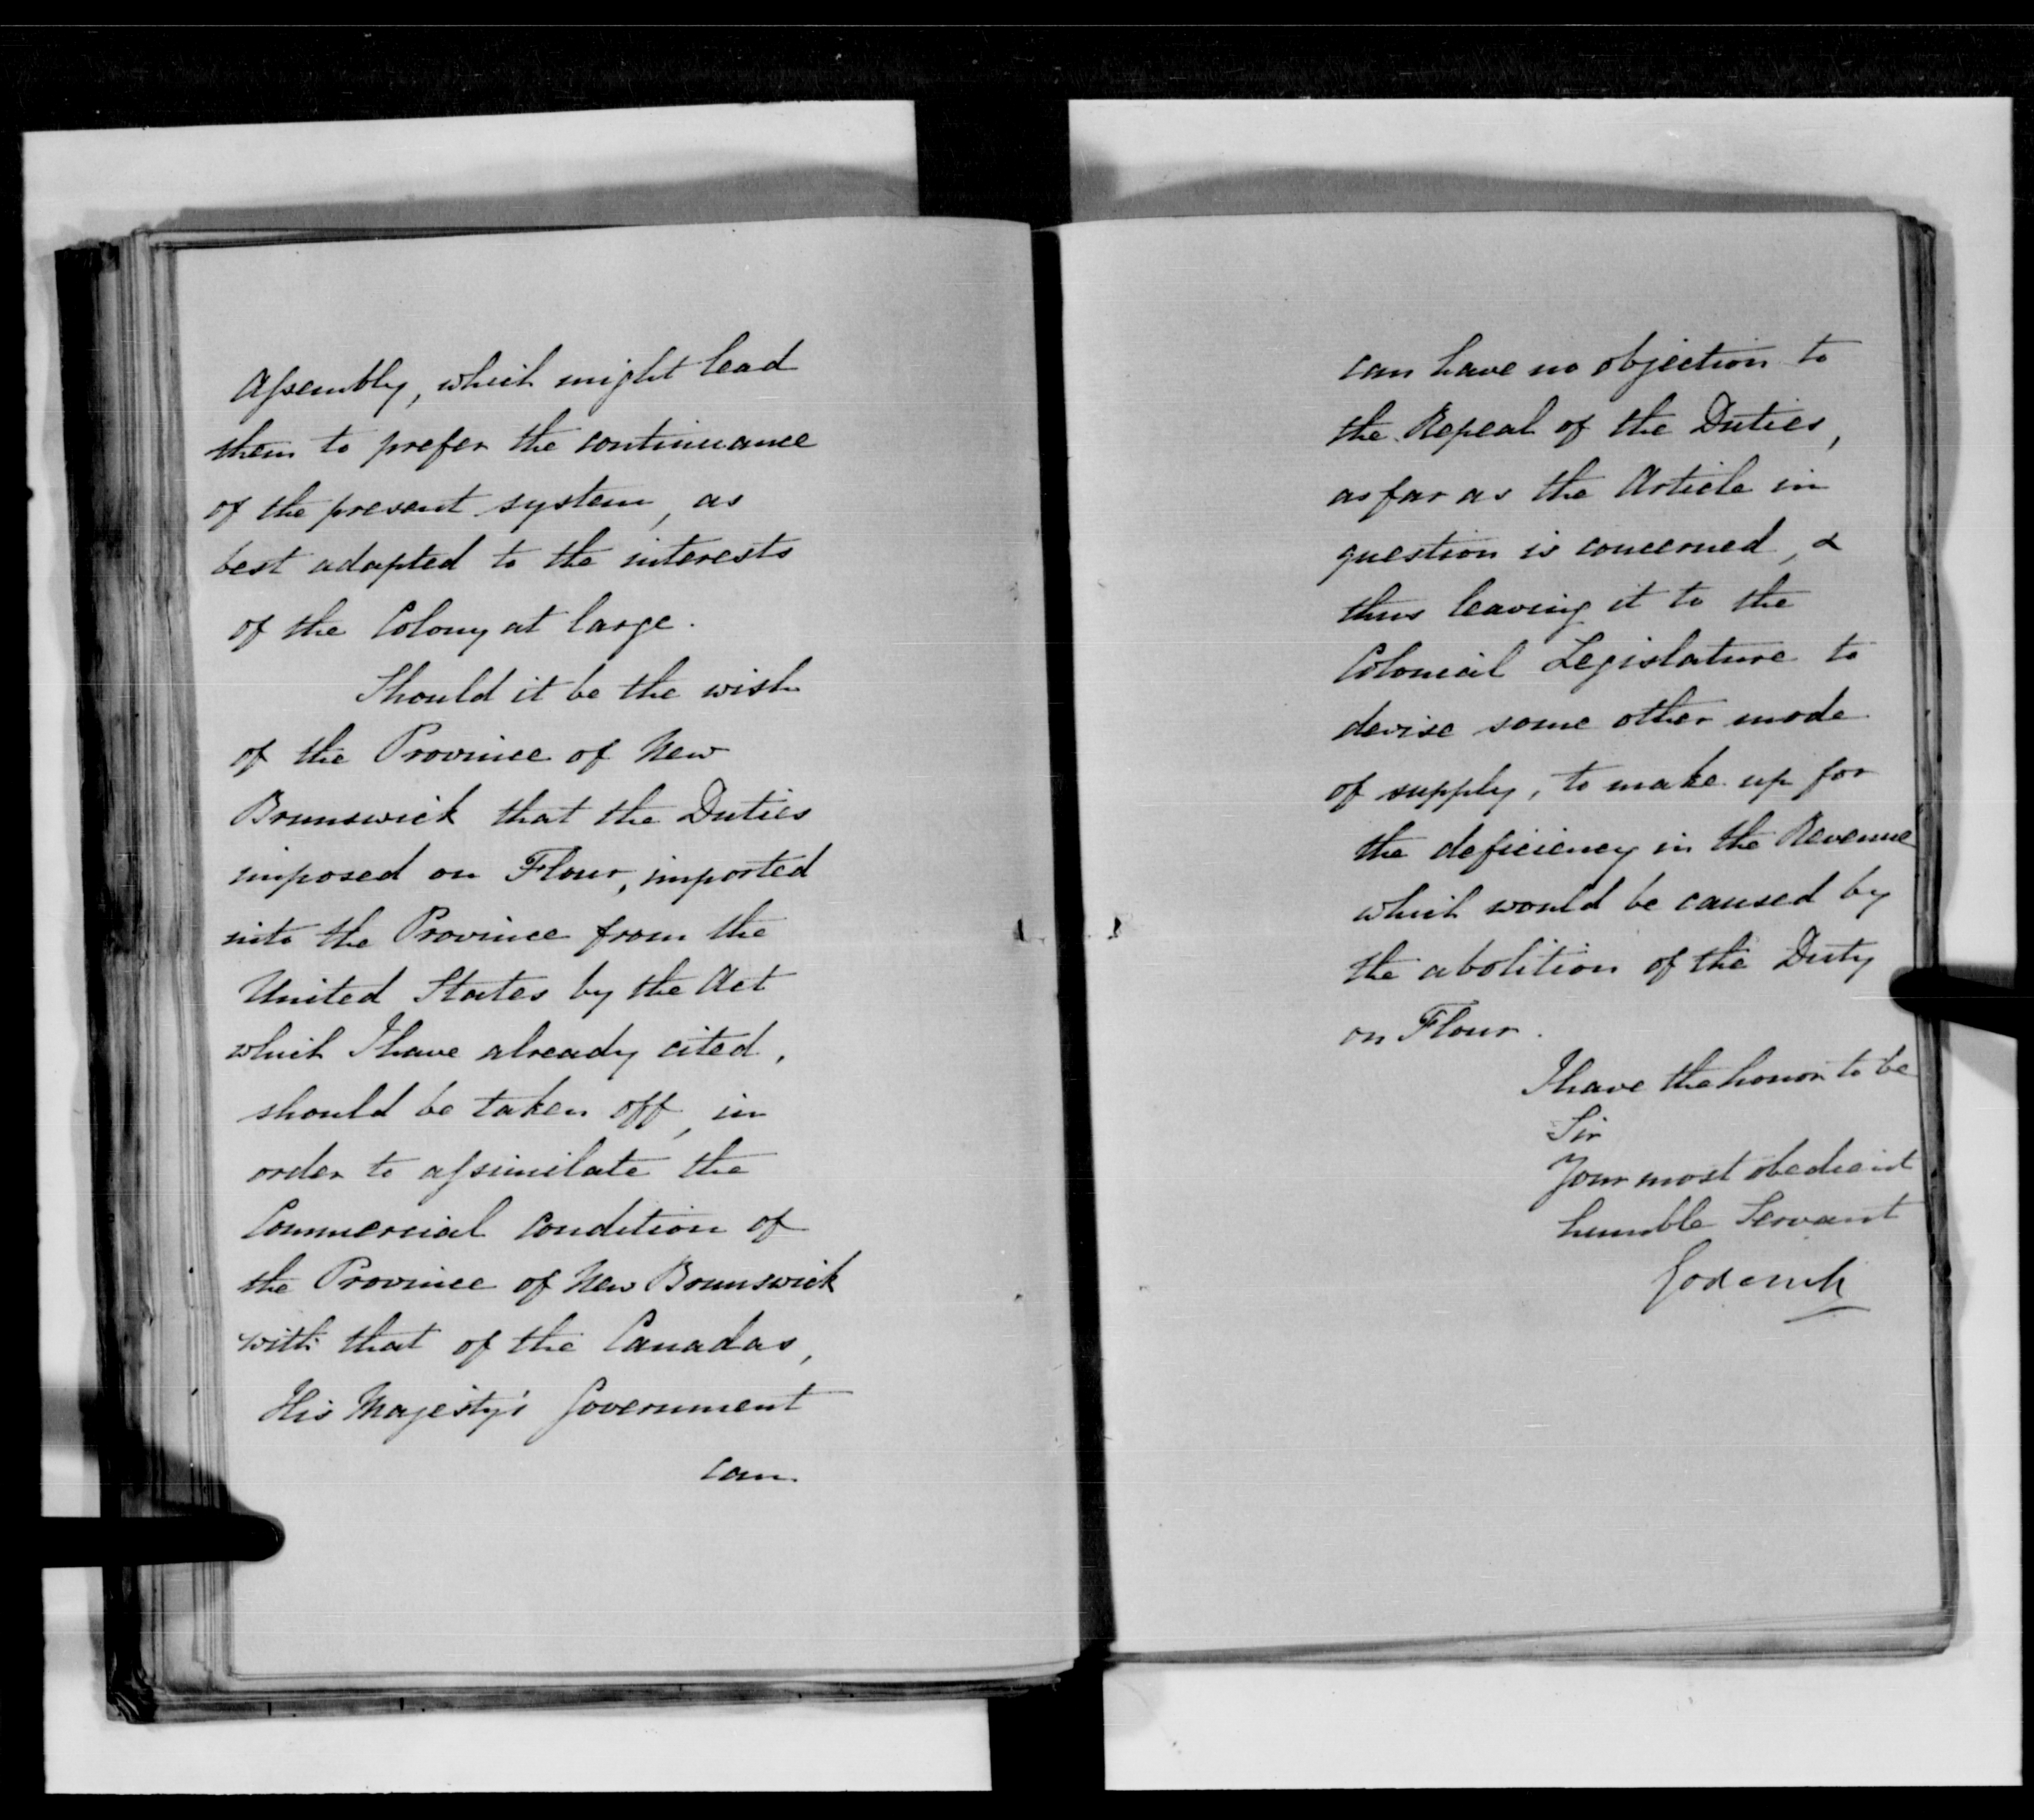 Assembly, which might lead
them to prefer the continuance
of the present system, as
best adapted to the interests
of the Colony at large.
Should it be the wish
of the Province of New
Brunswick that the Duties
imposed on Flour, imported
into the Province from the
United States by the Act
which I have already cited,
should be taken off, in
order to assimilate the
Commercial Condition of
the Province of New Brunswick
with that of the Canadas,
His Majesty's Government
can
can have no objection to
the Repeal of the Duties,
as far as the Article in
question is concerned, &
thus leaving it to the
Colonial Legislature to
devise some other mode
of supply, to make up for
the deficiency in the Revenue
which would be caused by
the abolition of the Duty
on Flour.
I have the honor to be
Sir
Your most obedient
humble Servant
Goderich